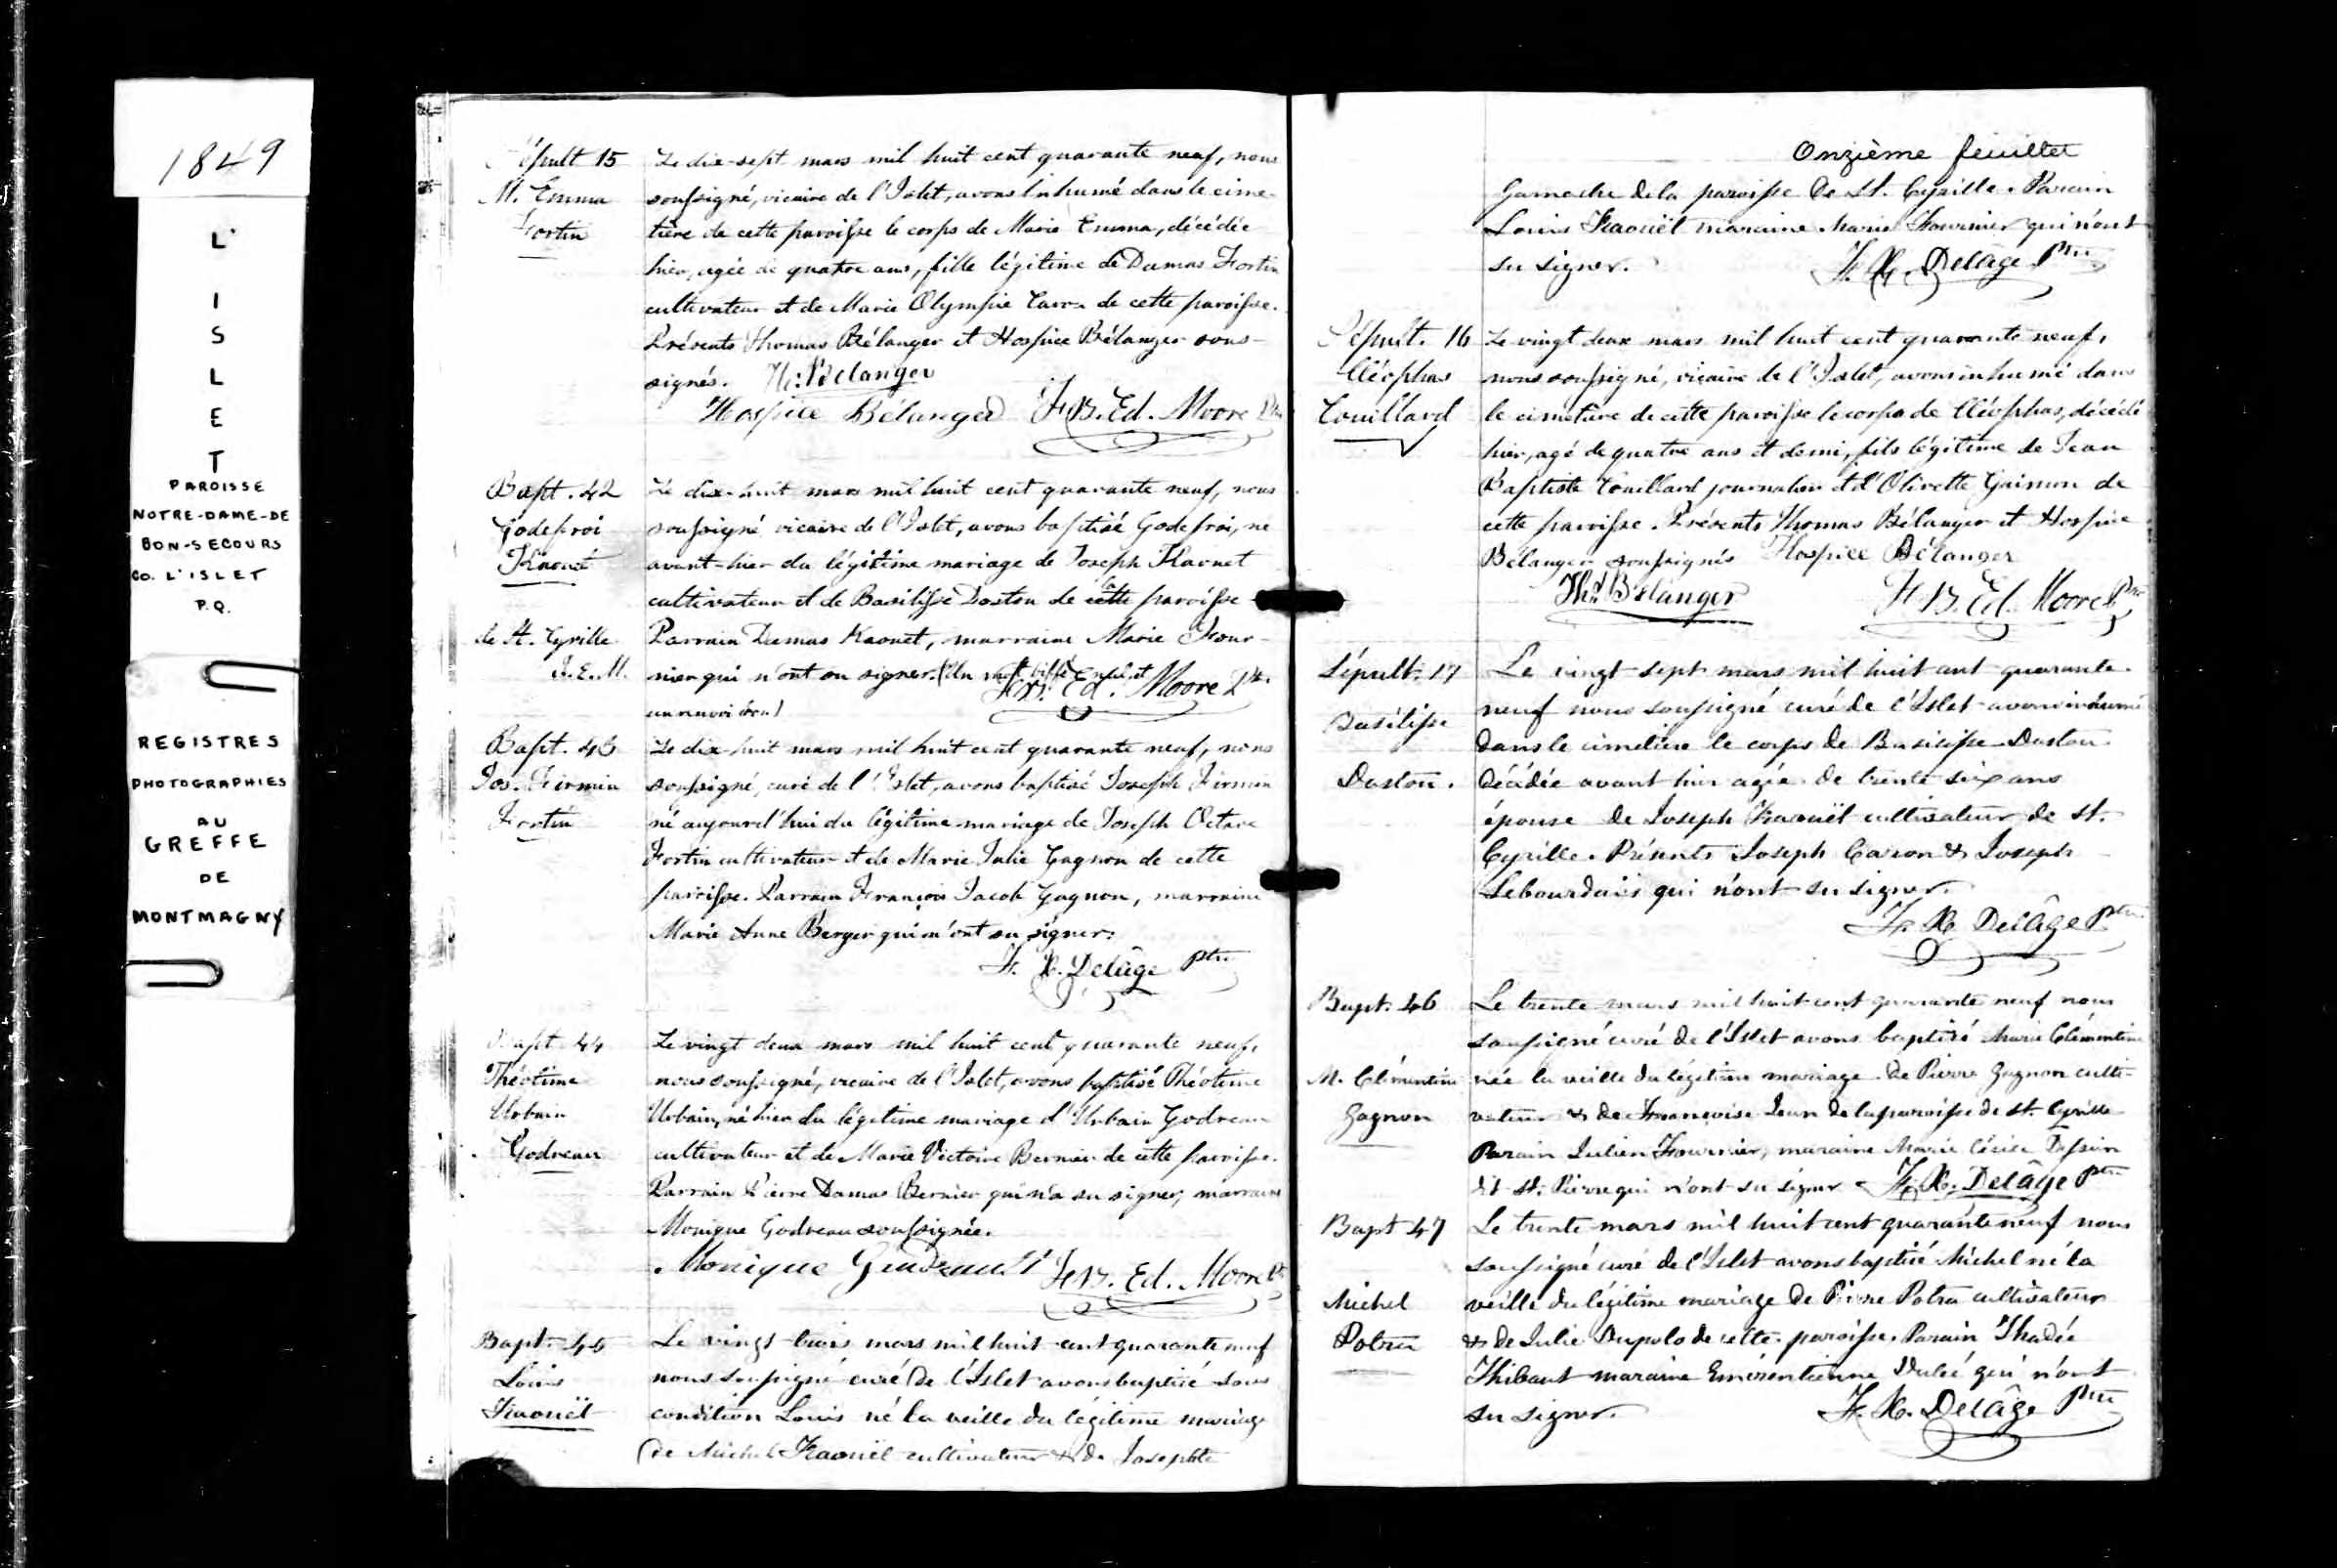 1849
L'
I
S
L
E
T
PAROISSE
NOTRE-DAME-DE
BON-SECOURS
CO. L'ISLET
P.Q.
REGISTRES
PHOTOGRAPHIES
AU
GREFFE
DE
MONTMAGNY
Sépult 15
M. Emma
Fortin
Le dix-sept mars mil huit cent quarante neuf, nous
soussigné, vicaire de l'Islet, avons inhumé dans le cime-
tière de cette paroisse le corps de Marie Emma, décédée
hier, agée de quatre ans, fille légitime de Damas Fortin
cultivateur et de Marie Olympie Caron de cette paroisse.
Présents Thomas Bélanger et Hospice Bélanger sous-
signés. Th: Bélanger
Hospice Bélanger Frs. Ed. Moore Ptre
Bapt. 42
Godefroi
Kaouet
de St. Cyrille
F.E.M.
Le dix-huit mars mil huit cent quarante neuf, nous
soussigné vicaire de l'Islet, avons baptisé Godefroi, né
avant-hier du légitime mariage de Joseph Kaouet
cultivateur et de Basilisse Daston de la cette paroisse
Parrain Damas Kaouet, marraine Marie Four-
nier qui n'ont su signer. (Un mot biffé et
un renvoi bon) Frs. Ed. Moore Ptre
Bapt. 43
Jos. Firmin
Fortin
Le dix-huit mars mil huit cent quarante neuf, nous
soussigné, curé de l'Islet, avons baptisé Joseph Firmin
né aujourd'hui du légitime mariage de Joseph Octave
Fortin cultivateur et de Marie Julie Gagnon de cette
paroisse. Parrain François Jacob Gagnon, marraine
Marie Anne Berger qui n'ont su signer.
F. X. Delâge Ptre
Bapt 44
Théotime
Urbain
Godreau
Le vingt deux mars mil huit cent quarante neuf,
nous soussigné, vicaire de l'Islet, avons baptisé Théotime
Urbain, né hier du légitime mariage d'Urbain Godreau
cultivateur et de Marie Victoire Bernier de cette paroisse.
Parrain Pierre Damas Bernier qui n'a su signer, marraine
Monique Godreau soussignée.
Monique Frs. Ed. Moore Ptre
Bapt. 45
Louis
Kaouët
Le vingt-trois mars mil huit cent quarante neuf
nous soussigné curé de l'Islet avons baptisé sous
condition Louis né la veille du légitime mariage
de Michel Kaouël cultivateur & de Josephte
Onzième feuillet
Gamache de la paroisse de St. Cyrille. Parain
Louis Kaouël maraine Marie Fournier qui n'ont
su signer. F. X. Delâge Ptre
Sépult. 16
Cléophas
Couillard
Le vingt deux mars mil huit cent quarante neuf,
nous soussigné, vicaire de l'Islet, avons inhumé dans
le cimetière de cette paroisse le corps de Cléophas, décédé
hier, agé de quatre ans et demi, fils légitime de Jean
Baptiste Couillard journalier et d'Olivette Guimon de
cette paroisse. Présents Thomas Bélanger et Hospice
Bélanger soussignés Hospice Bélanger
Ths. Bélanger Frs. Ed. Moore Ptre
Sépult. 17
Basilisse
Daston.
Le vingt-sept mars mil huit cent quarante
neuf nous soussigné curé de l'Islet avons inhumé
dans le cimetière le corps de Basilisse Daston
décédée avant hier agée de trente six ans
épouse de Joseph Kaouël cultivateur de St.
Cyrille. Présents Joseph Caron & Joseph
Lebourdais qui n'ont su signer.
F. X. Delâge Ptre
Bapt. 46
M. Clémentine
Gagnon
Le trente mars mil huit cent quarante neuf nous
soussigné curé de l'Islet avons baptisé Marie Clémentine
née la veille du légitime mariage de Pierre Gagnon culti-
vateur & de Françoise Jean de la paroisse de St. Cyrille
Parain Julien Fournier, maraine Marie Cécile
dit St. Pierre qui n'ont su signer F. X. Delâge Ptre
Bapt 47
Michel
Potra
Le trente mars mil huit cent quarante neuf nous
soussigné curé de l'Islet avons baptisé Michel né la
veille du légitime mariage de Pierre Potra cultivateur
& de Julie Dupolo de cette paroisse. Parain Thadée
Thibaut maraine Emérentienne Dubé qui n'ont
su signer. F. X. Delâge Ptre